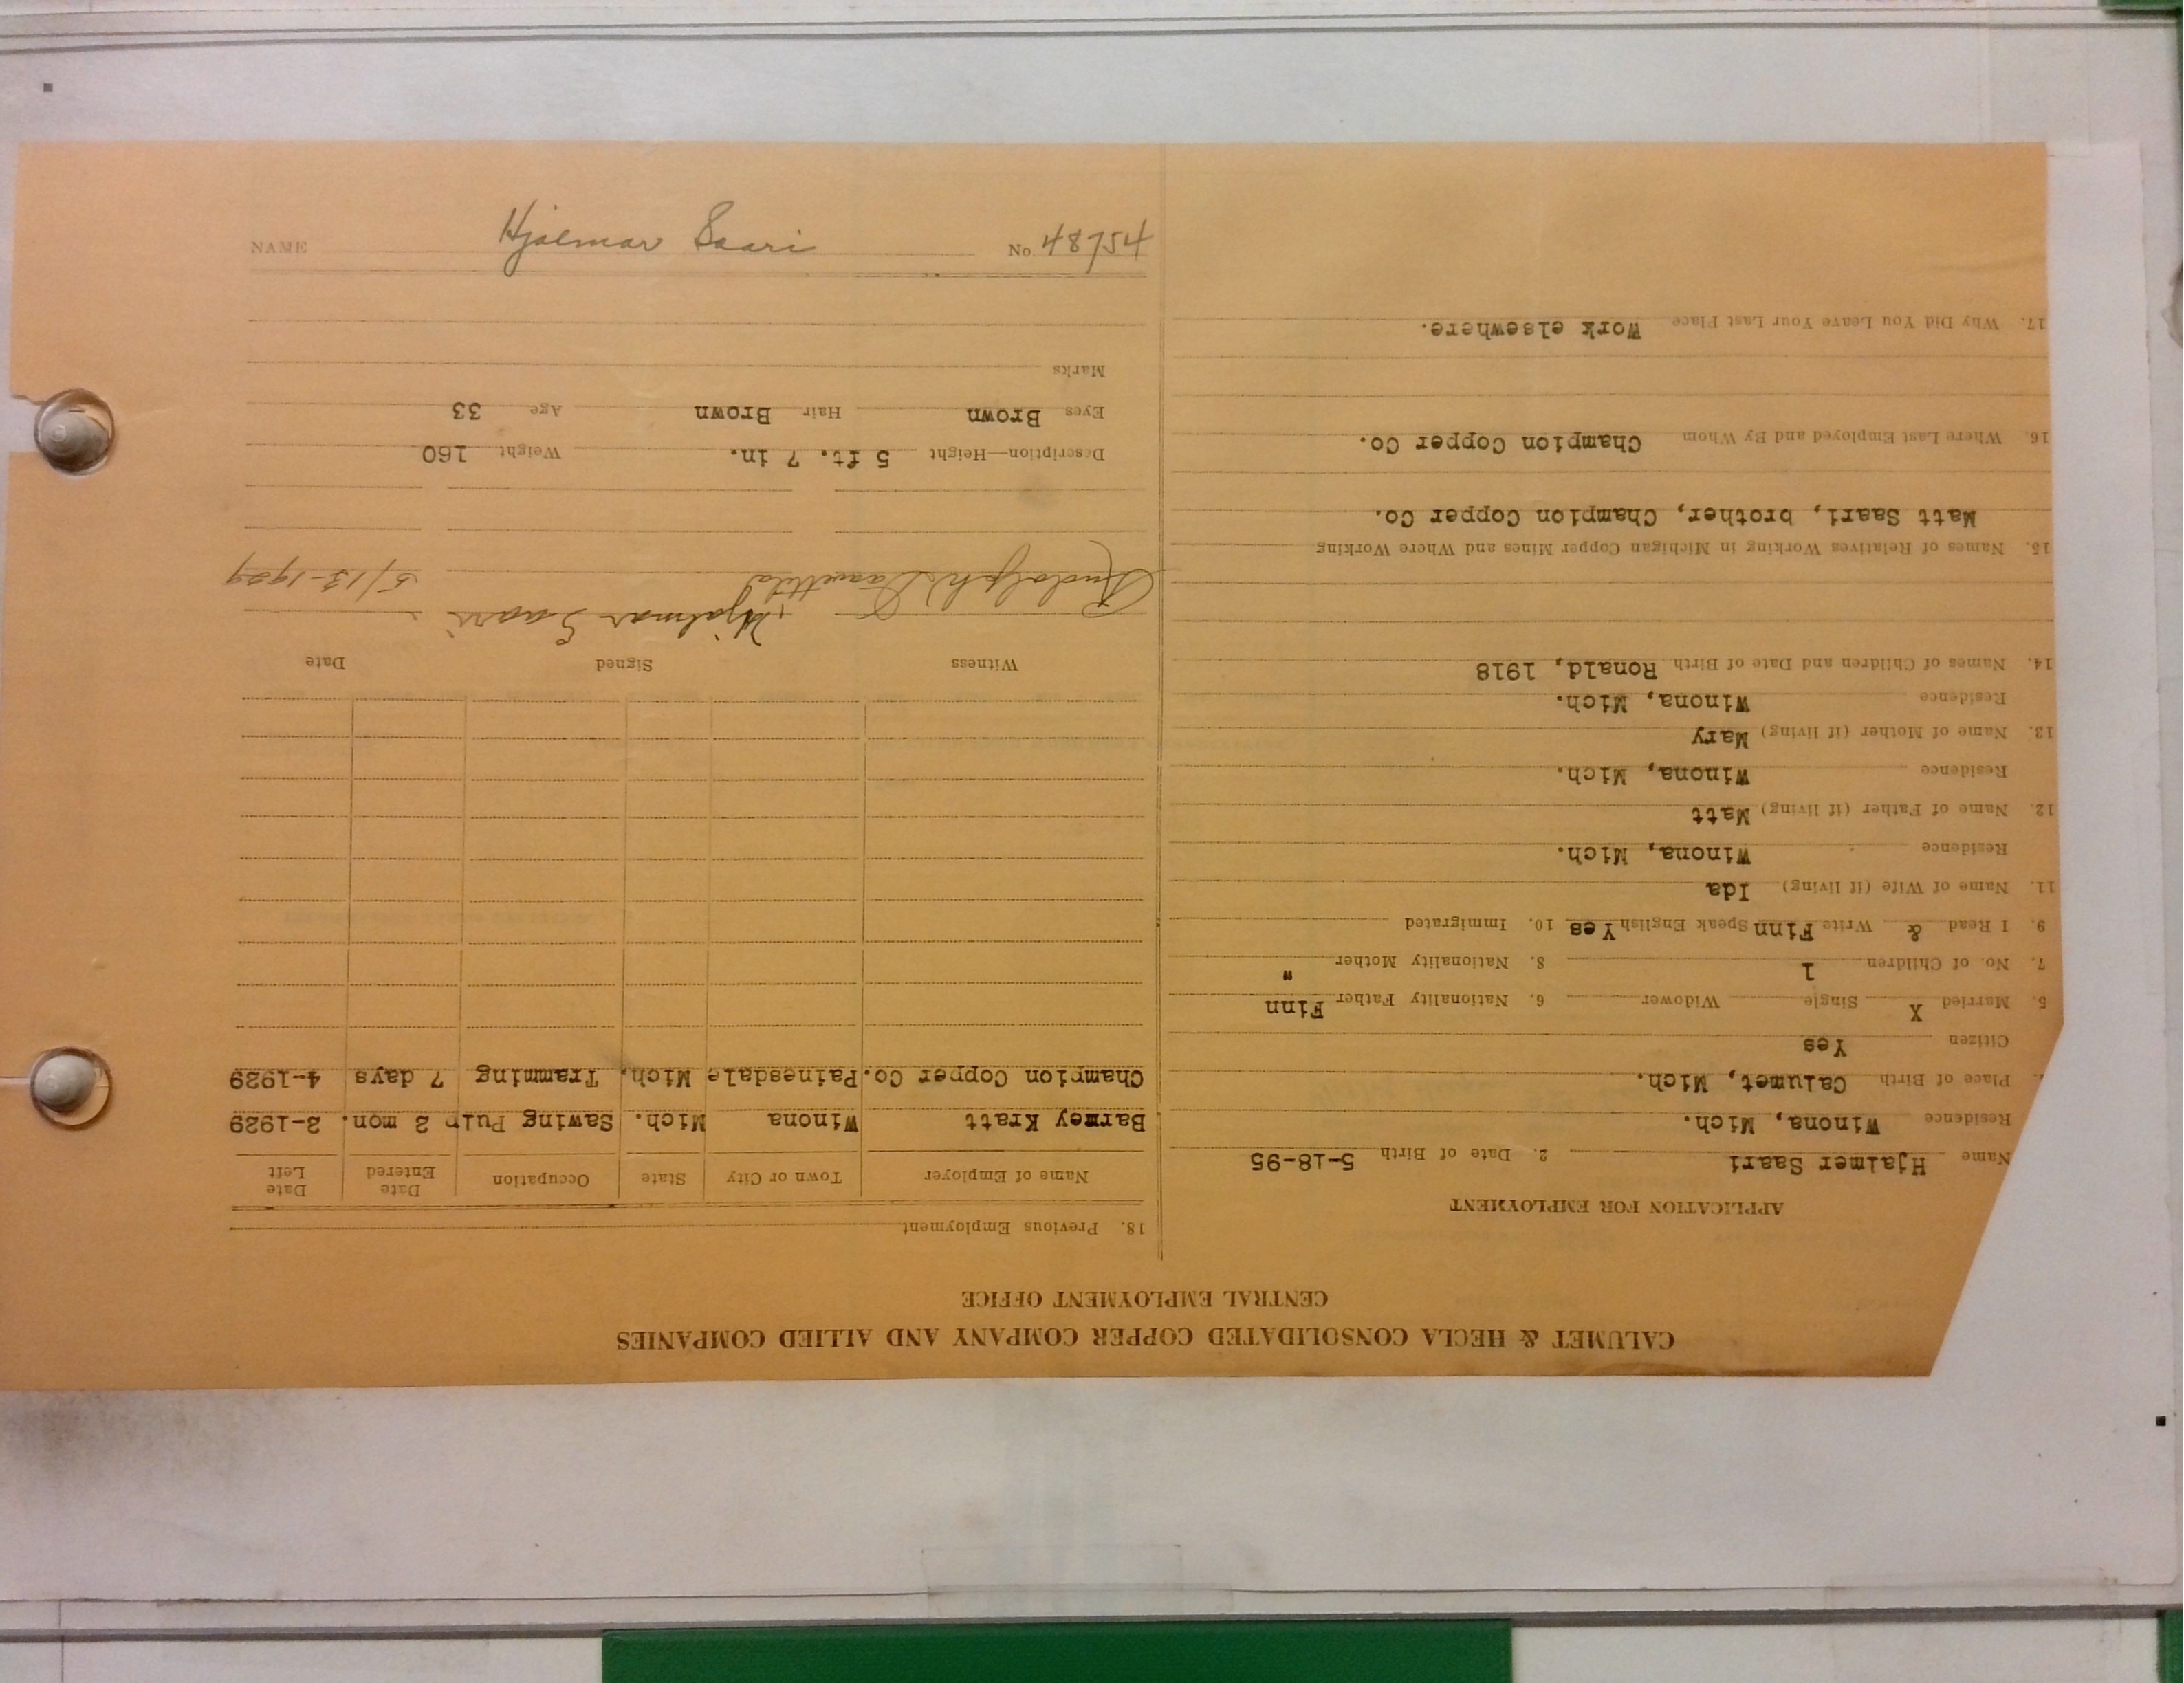 NAME Hjalmar Saari No 48754
CALUMET & HECLA CONSOLIDATED COPPER COMPANY AND ALLIED COMPANIES
CENTRAL EMPLOYMENT OFFICE
APPLICATION FOR EMPLOYMENT
Name Hjalmer Saari 2. Date of Birth 5-18-95
Residence Winona, Mich.
Place of Birth Calumet, Mich.
Citizen Yes
5. Married X Single Widower 6. Nationality Father Finn
7. No. of Children 1 8. Nationality Mother "
9. I Read & Write Finn Speak English Yes 10. Immigrated
11. Name of Wife (if living) Ida
Residence Winona, Mich.
12. Name of Father (if living) Matt
Residence Winona, Mich.
13. Name of Mother (if living) Mary
Residence Winona, Mich.
14. Names of Children and Date of Birth Ronald, 1918
15. Names of Relatives Working in Michigan Copper Mines and Where Working
Matt Saari, brother, Champion Copper Co.
16. Where Last Employed and By Whom Champion Copper Co.
17. Why Did You Leave Your Last Place Work elsewhere.
18. Previous Employment
Name of Employer Town or City State Occupation Date Entered Date Left
Barney Kratt Winona Mich. Sawing Pulp 2 mon. 3-1929
Champion Copper Co. Painesdale Mich. Tramming 7 days 4-1929
Witness Signed Date
Rudolph Hjalmar Saari 5/13-1929
Description—Height 5 ft. 7 in. Weight 160
Eyes Brown Hair Brown Age 33
Marks